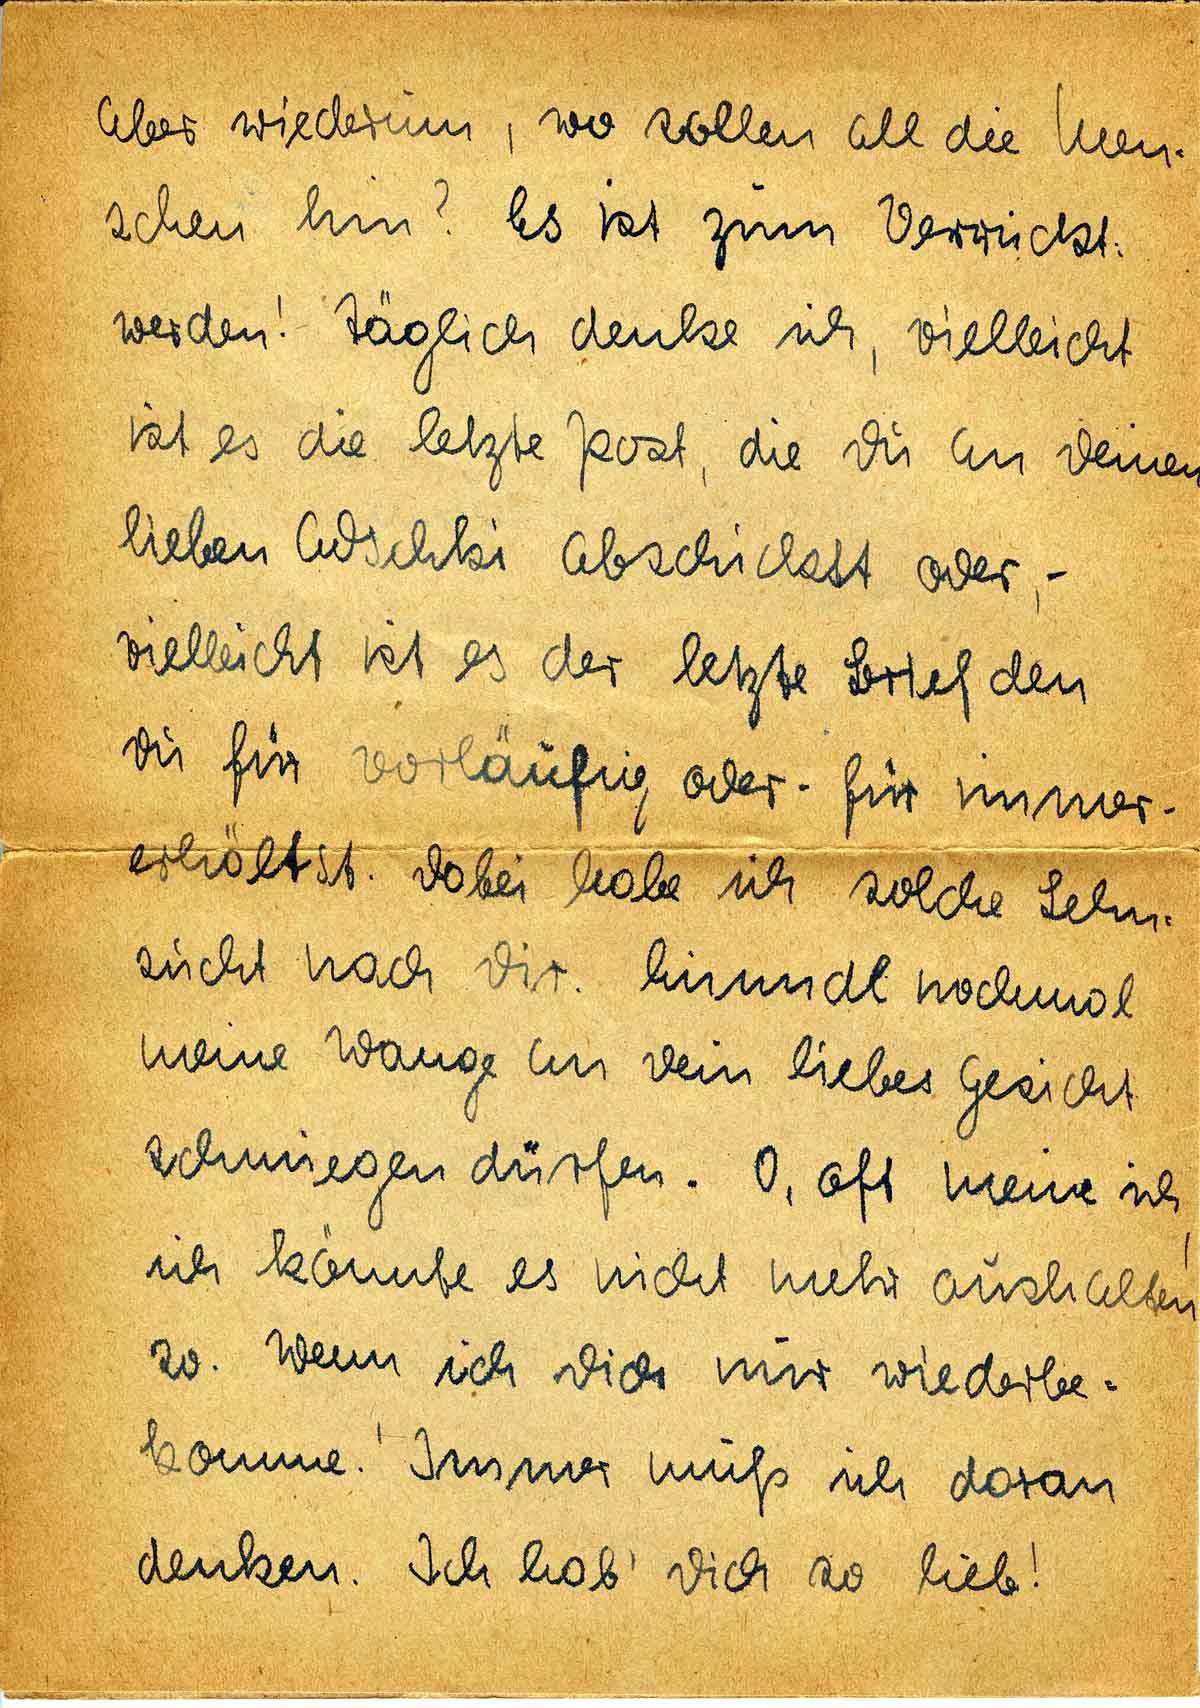 Aber wiederum, wo sollen all die Men-
schen hin? Es ist zum Verrückt-
werden! Täglich denke ich, vielleicht
ist es die letzte Post, die Du an Deinen
lieben abschickst oder,-
vielleicht ist es der letzte Brief den
Du für vorläufig oder - für immer -
erhältst. Dabei habe ich solche Sehn-
sucht nach Dir. nochmal
meine Wange an Dein liebes Gesicht
schmiegen dürfen. O, oft meine ich,
ich könnte es nicht mehr aushalten
so. Wenn ich Dich nur wiederbe-
komme! Immer muß ich daran
denken. Ich hab' Dich so lieb!